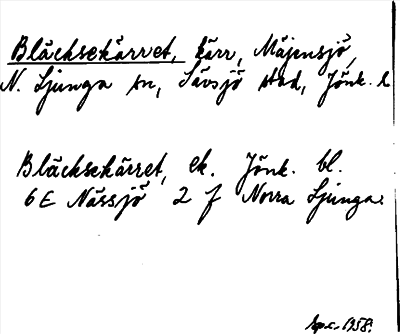 Bläcksekärret, kärr, Mäjensjö,
N. Ljunga sn, Sävsjö stad, Jönk. l
Bläcksekärret, ek. Jönk. bl.
6 E Nässjö 2 f Norra Ljunga.
1958.